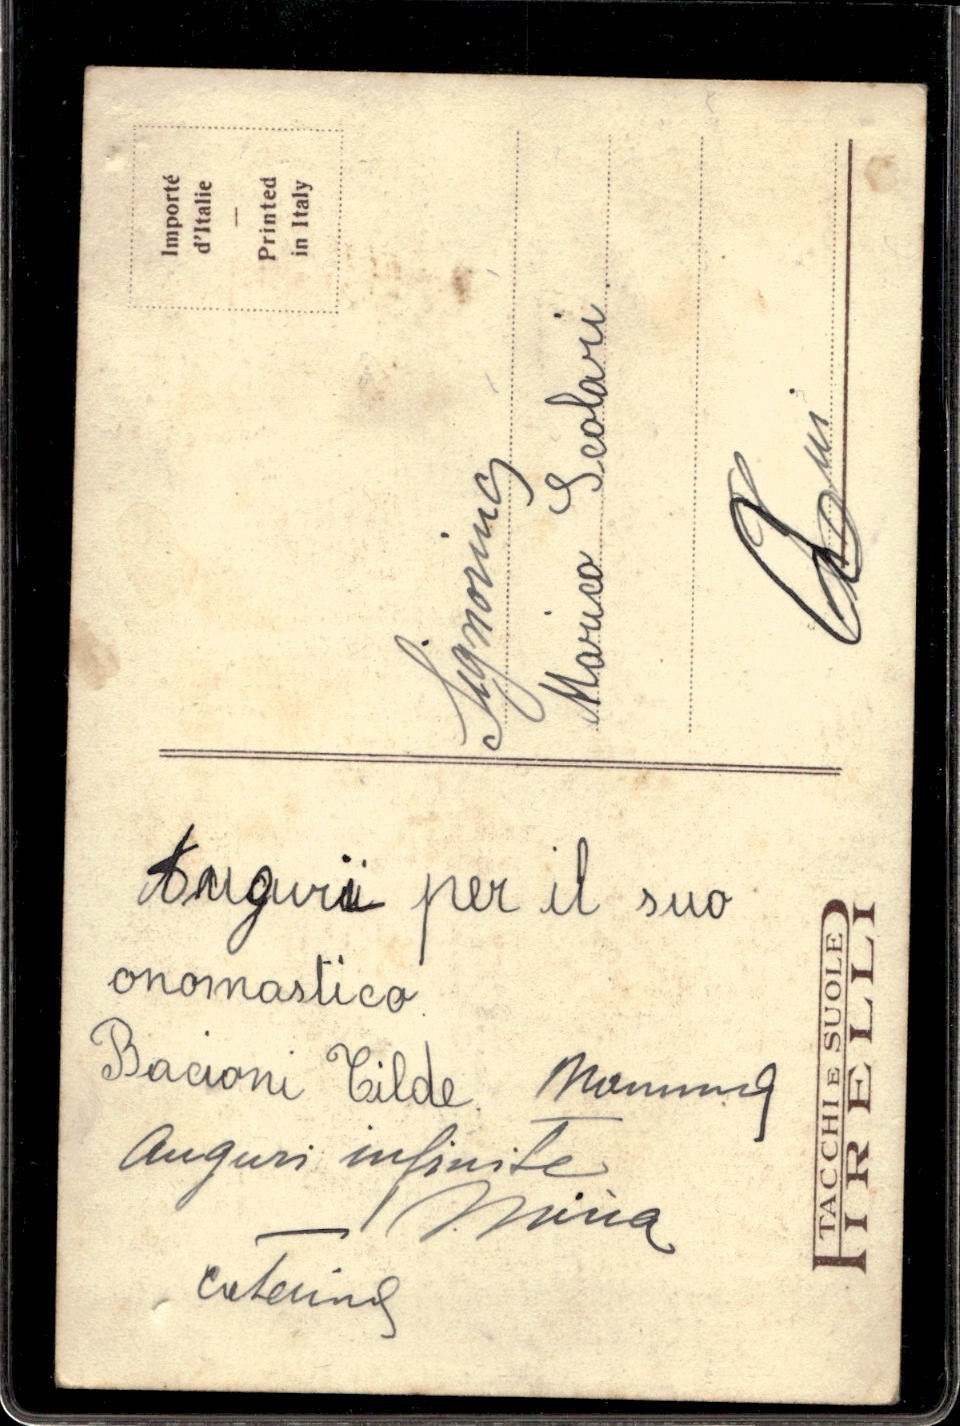 Importé
d'Italie
—
Printed
in Italy
Signorina
Marica Scolari
Auguri per il suo
onomastico
Bacioni Tilde. Mamma
Auguri infinite
Caterina
TACCHI E SUOLE
PIRELLI